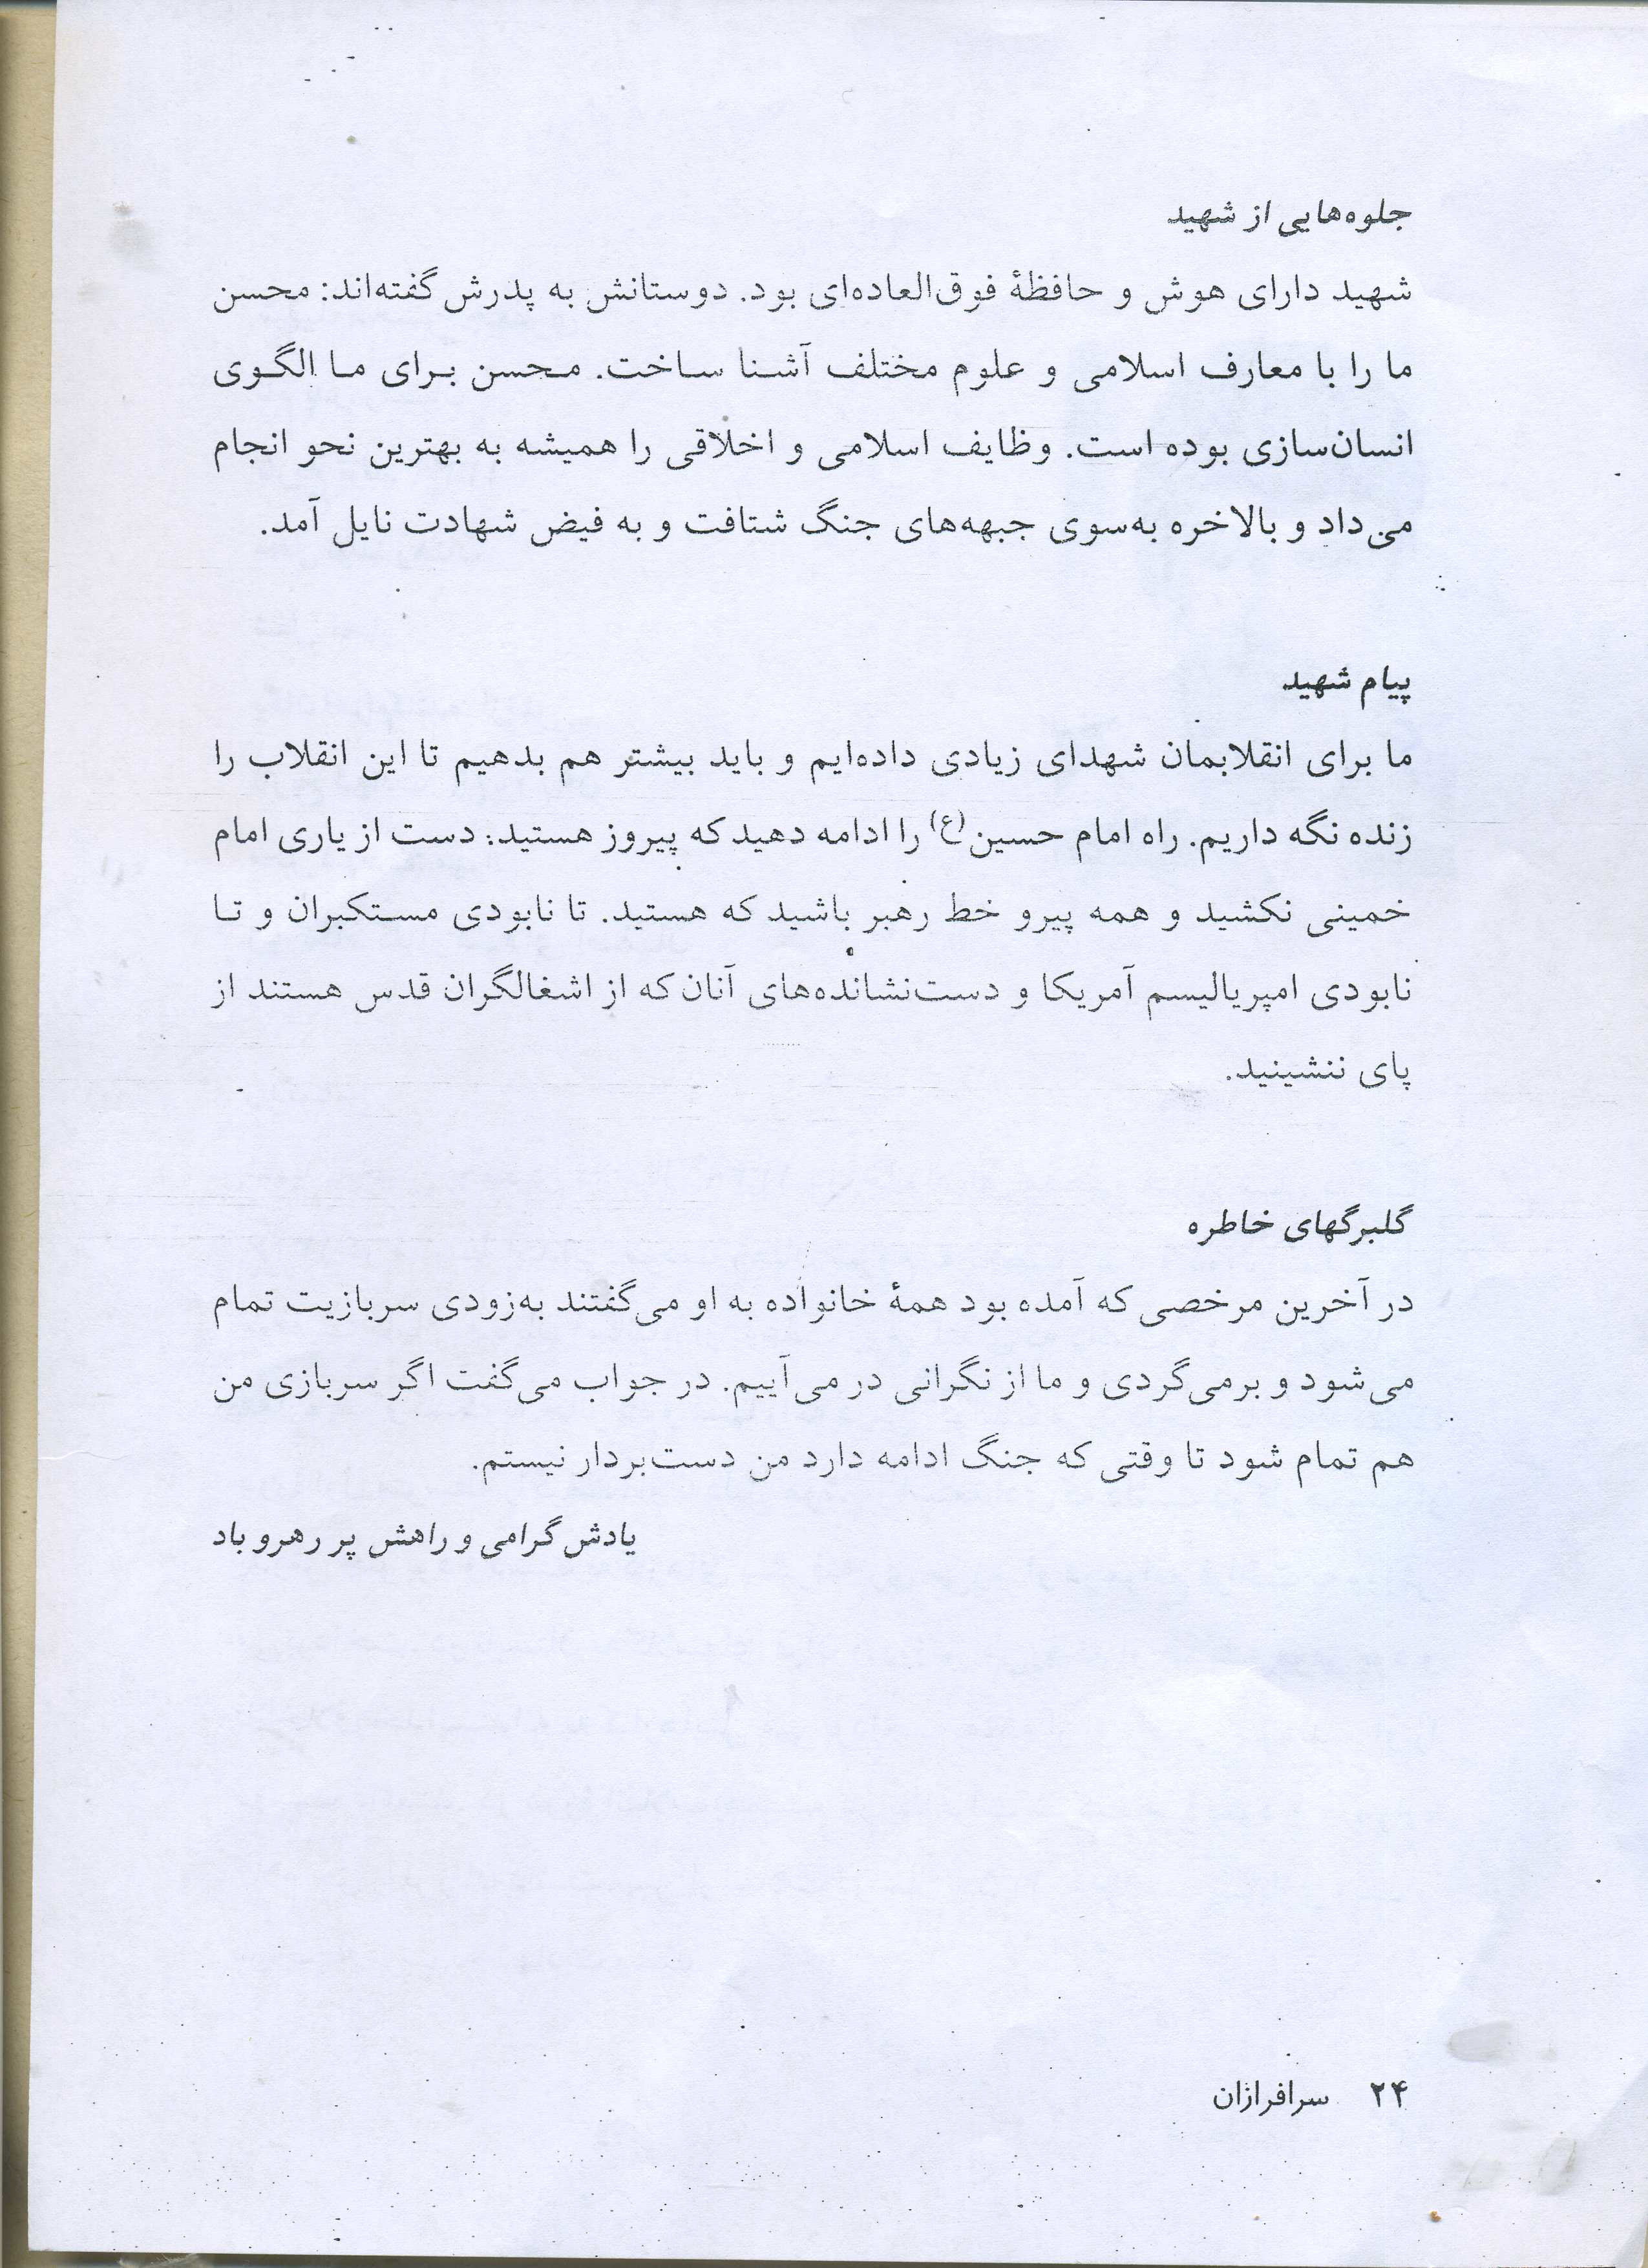 جلوه‌هایی از شهید
شهید دارای هوش و حافظهٔ فوق‌العاده‌ای بود. دوستانش به پدرش گفته‌اند: محسن
ما را با معارف اسلامی و علوم مختلف آشنا ساخت. محسن برای ما الگوی
انسان‌سازی بوده است. وظایف اسلامی و اخلاقی را همیشه به بهترین نحو انجام
می‌داد و بالاخره به‌سوی جبهه‌های جنگ شتافت و به فیض شهادت نایل آمد.
پیام شهید
ما برای انقلابمان شهدای زیادی داده‌ایم و باید بیشتر هم بدهیم تا این انقلاب را
زنده نگه داریم. راه امام حسین(ع) را ادامه دهید که پیروز هستید: دست از یاری امام
خمینی نکشید و همه پیرو خط رهبر باشید که هستید. تا نابودی مستکبران و تا
نابودی امپریالیسم آمریکا و دست‌نشانده‌های آنان که از اشغالگران قدس هستند از
پای ننشینید.
گلبرگهای خاطره
در آخرین مرخصی که آمده بود همهٔ خانواده به او می‌گفتند به‌زودی سربازیت تمام
می‌شود و برمی‌گردی و ما از نگرانی در می‌آییم. در جواب می‌گفت اگر سربازی من
هم تمام شود تا وقتی که جنگ ادامه دارد من دست‌بردار نیستم.
یادش گرامی و راهش پر رهرو باد
۲۴ سرافرازان